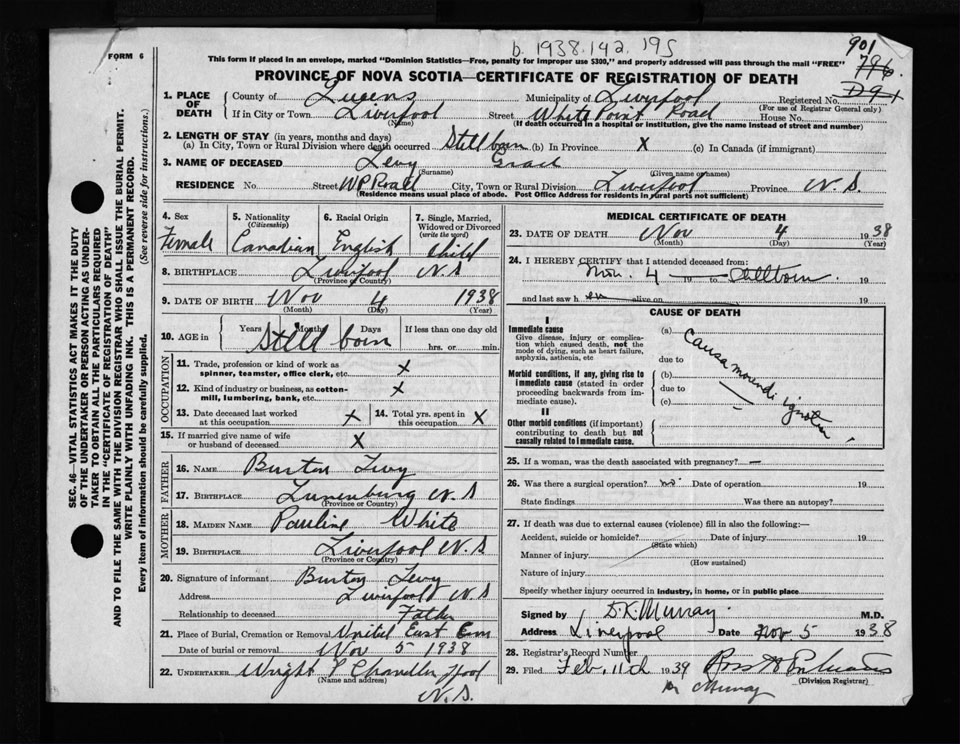 b. 1938. 142. 195
901
FORM 6
This form if placed in an envelope, marked "Dominion Statistics—Free, penalty for improper use $300," and properly addressed will pass through the mail "FREE"
796.
PROVINCE OF NOVA SCOTIA—CERTIFICATE OF REGISTRATION OF DEATH
1. PLACE OF DEATH County of Queens Municipality of Liverpool Registered No.
(For use of Registrar General only)
If in City or Town Liverpool Street White Point Road House No.
(Name) (If death occurred in a hospital or institution, give the name instead of street and number)
2. LENGTH OF STAY (in years, months and days)
(a) In City, Town or Rural Division where death occurred Stillborn (b) In Province X (c) In Canada (if immigrant)
3. NAME OF DECEASED Levy
(Surname) (Given name or names)
RESIDENCE No. Street W P Road City, Town or Rural Division Liverpool Province N. S.
(Residence means usual place of abode. Post Office Address for residents in rural parts not sufficient)
4. Sex Female
5. Nationality (Citizenship) Canadian
6. Racial Origin English
7. Single, Married, Widowed or Divorced (write the word) Child
8. BIRTHPLACE Liverpool N S
(Province or Country)
9. DATE OF BIRTH Nov 4 1938
(Month) (Day) (Year)
10. AGE in Years Months Days If less than one day old
Still born hrs. or min.
OCCUPATION
11. Trade, profession or kind of work as spinner, teamster, office clerk, etc. X
12. Kind of industry or business, as cotton-mill, lumbering, bank, etc. X
13. Date deceased last worked at this occupation X
14. Total yrs. spent in this occupation X
15. If married give name of wife or husband of deceased X
FATHER
16. NAME Burton Levy
17. BIRTHPLACE Lunenburg N S
(Province or Country)
MOTHER
18. MAIDEN NAME Pauline White
19. BIRTHPLACE Liverpool N. S.
(Province or Country)
20. Signature of informant Burton Levy
Address Liverpool N S
Relationship to deceased Father
21. Place of Burial, Cremation or Removal United East Cem
Date of burial or removal Nov 5 1938
22. UNDERTAKER Wright & Chandler
(Name and address)
N. S.
MEDICAL CERTIFICATE OF DEATH
23. DATE OF DEATH Nov 4 1938
(Month) (Day) (Year)
24. I HEREBY CERTIFY that I attended deceased from:
Nov. 4 19 to stillborn. 19
and last saw h alive on 19
CAUSE OF DEATH
I
Immediate cause
Give disease, injury or complication which caused death, not the mode of dying, such as heart failure, asphyxia, asthenia, etc
Morbid conditions, if any, giving rise to immediate cause (stated in order proceeding backwards from immediate cause).
II
Other morbid conditions (if important) contributing to death but not causally related to immediate cause.
(a)
due to
(b)
due to
(c)
Causa moriendi ignota.
25. If a woman, was the death associated with pregnancy? —
26. Was there a surgical operation? no Date of operation 19
State findings Was there an autopsy?
27. If death was due to external causes (violence) fill in also the following:—
Accident, suicide or homicide? Date of injury 19
(State which)
Manner of injury
(How sustained)
Nature of injury
Specify whether injury occurred in industry, in home, or in public place
Signed by D. K. Murray. M.D.
Address Liverpool Date Nov 5 1938
28. Registrar's Record Number
29. Filed Feb. 11th 1939
(Division Registrar)
Dr Murray
SEC. 46—VITAL STATISTICS ACT MAKES IT THE DUTY
OF THE UNDERTAKER OR PERSON ACTING AS UNDER-
TAKER TO OBTAIN ALL THE PARTICULARS REQUIRED
IN THE "CERTIFICATE OF REGISTRATION OF DEATH"
AND TO FILE THE SAME WITH THE DIVISION REGISTRAR WHO SHALL ISSUE THE BURIAL PERMIT.
WRITE PLAINLY WITH UNFADING INK. THIS IS A PERMANENT RECORD.
Every item of information should be carefully supplied. (See reverse side for instructions.)